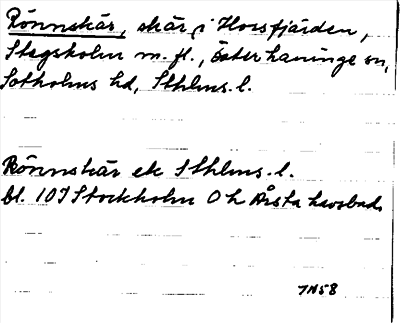 Rönnskär, skär i Horsfjärden,
Stegsholm m. fl., Österhaninge sn,
Sotholms hd, Sthlms. l.
Rönnskär ek Sthlms. l.
bl. 10I Stockholm 0h Årsta havsbad.
7N58